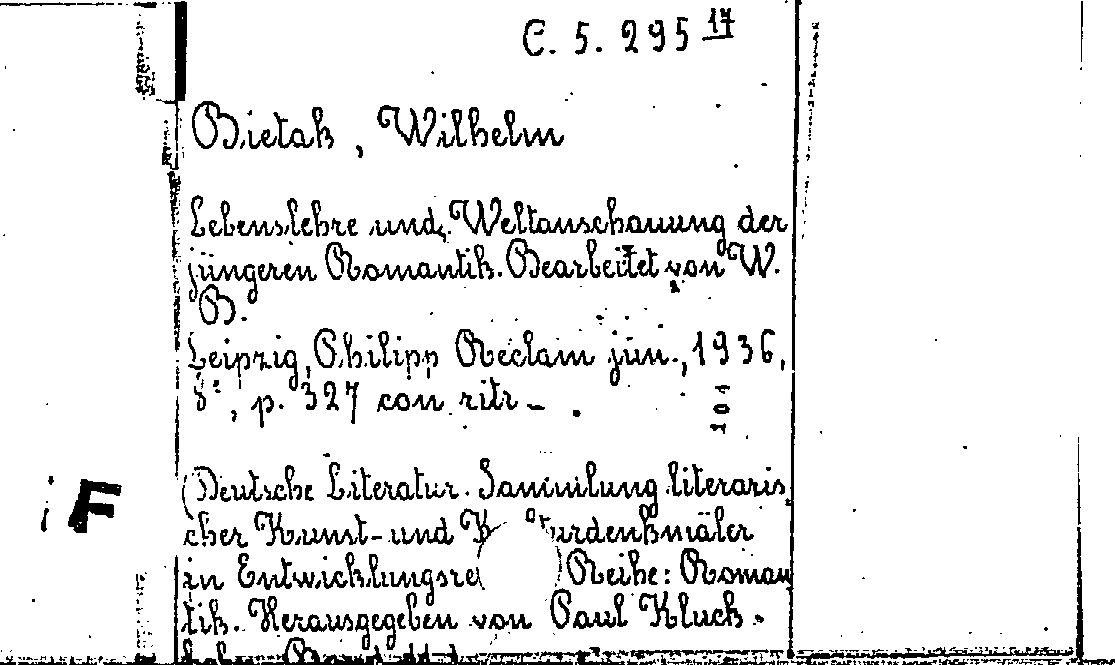 C. 5. 295 17
Bietak, Wilhelm
Lebenslehre und Weltanschauung der
jüngeren Romantik. Bearbeitet von W.
B.
Leipzig, Philipp Reclam jun., 1936,
8°, p. 327 con ritr.
101
(Deutsche Literatur. Sammlung literaris
cher Kunst- und K turdenkmäler
in Entwicklungsre Reihe: Roman
tik. Herausgegeben von Paul Kluck-
i F